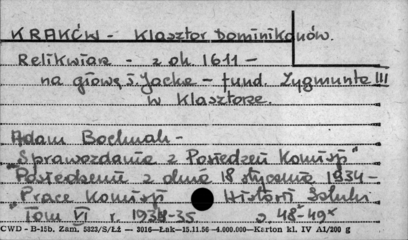 KRAKÓW - Klasztor Dominikanów.
Relikwiarz - z ok. 1611 -
na głowę ś. Jacka - fund. Zygmunta III
w Klasztorze.
Adam Bochnak -
"Sprawozdania z Posiedzeń Komisji"
Posiedzenie z dnia 18 stycznia 1934 -
"Prace Komisji Historii Sztuki
Tom VI r. 1934-35. s. 48*-49*
CWD - B-15b. Zam. 5322/S/Łż — 3016—Łak—15.11.56 —4.000.000—Karton kl. IV A1/200 g